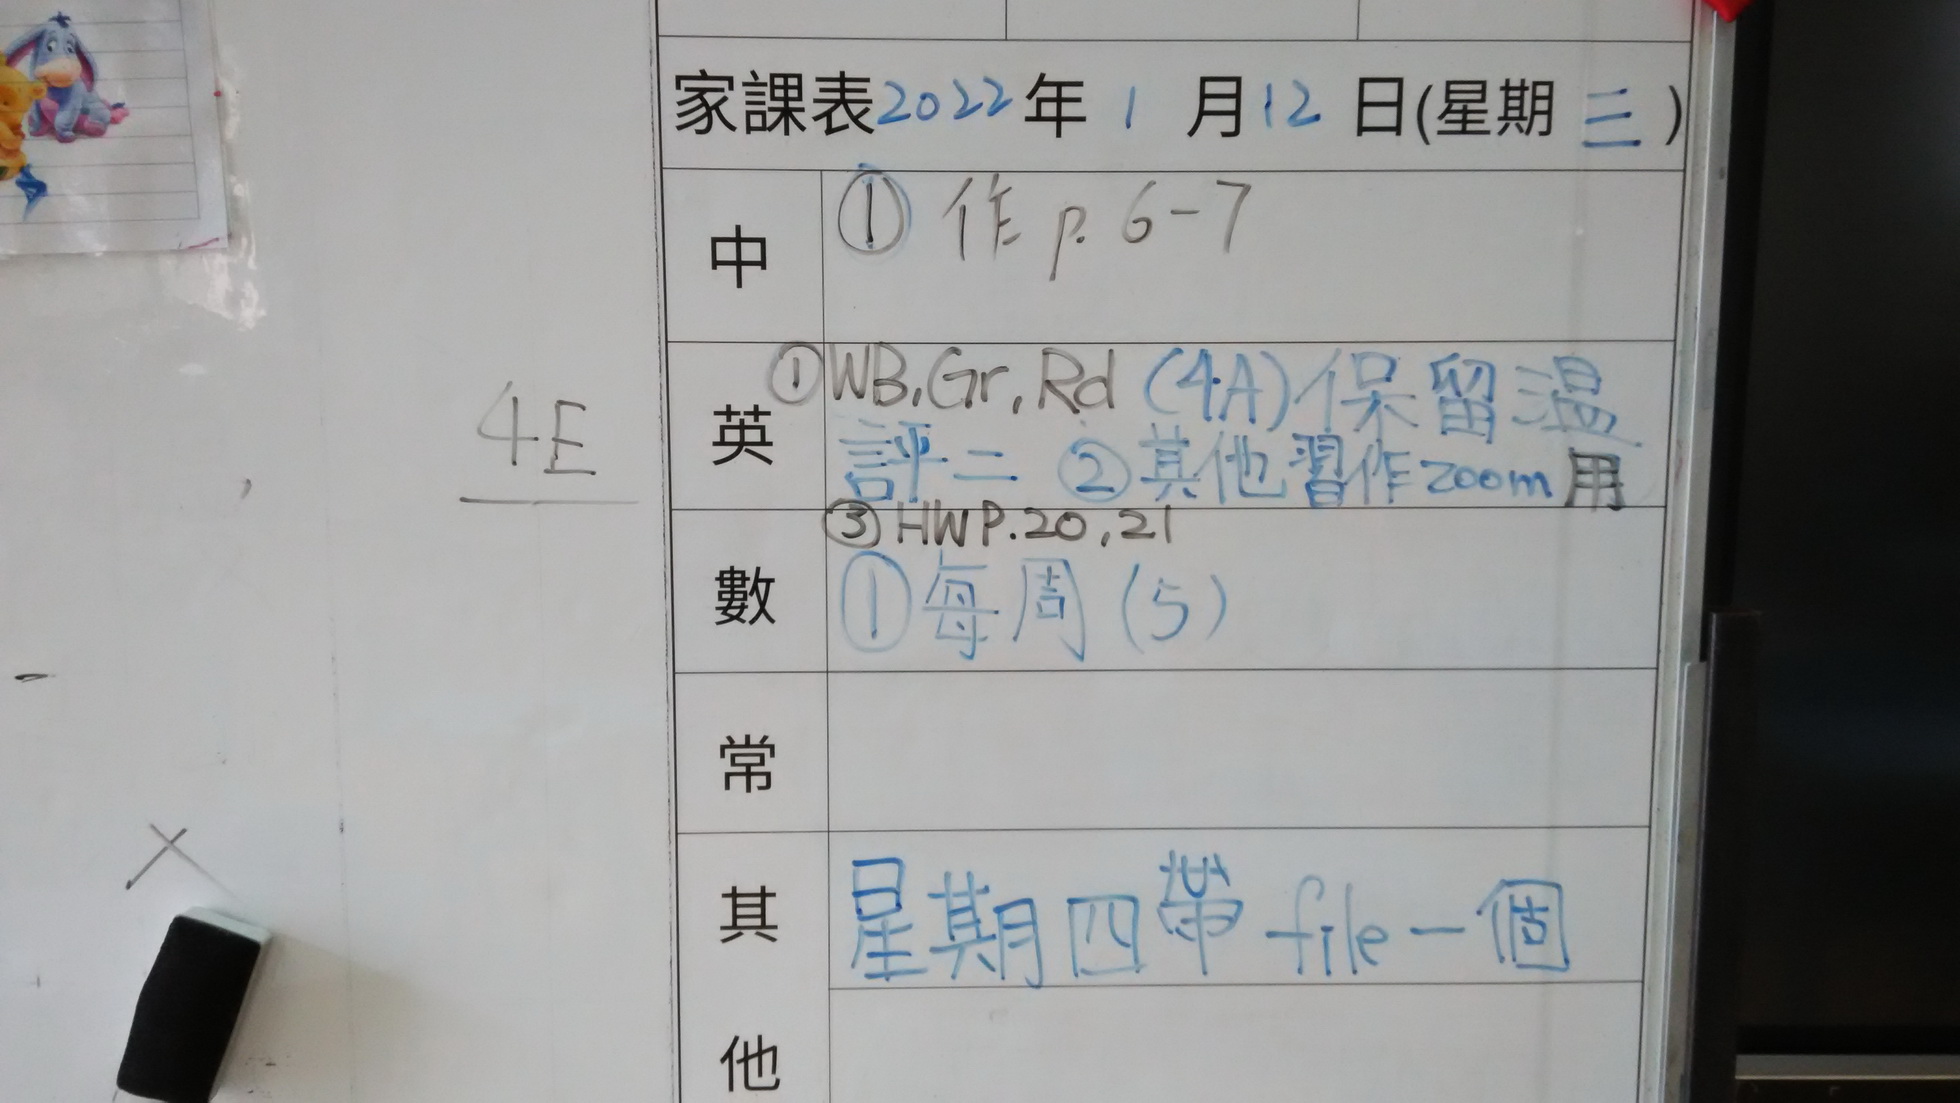 家課表2022年1月12日(星期三)
中
①作p.6-7
4E
英
①WB,Gr,Rd(4A)保留溫
評二 ②其他習作zoom用
③HWP.20,21
數
①每周(5)
常
其他
星期四帶file一個